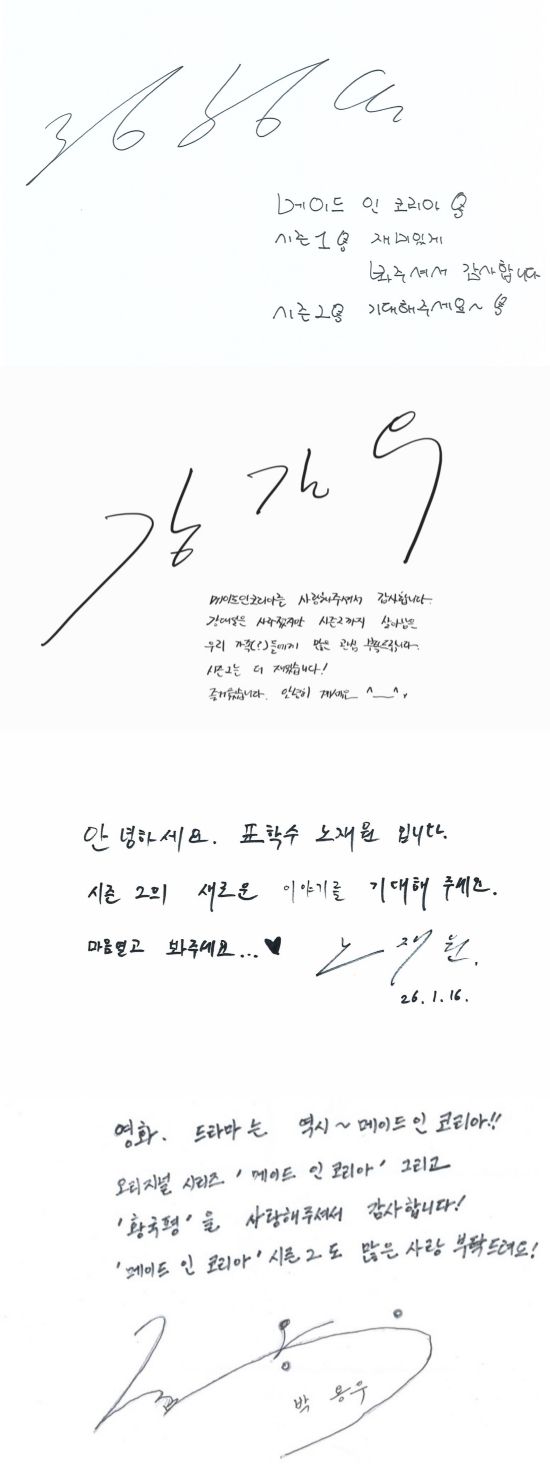 메이드 인 코리아
시즌1 재미있게
봐주셔서 감사합니다
시즌2 기대해주세요~
강길우
메이드인코리아를 사랑해주셔서 감사합니다.
강대일은 사라졌지만 시즌2까지 살아남은
우리 가족(?)들에게 많은 관심 부탁드립니다.
시즌2는 더 재밌습니다!
즐거웠습니다. 안녕히 계세요 ^__^,
안녕하세요. 표학수 노재원 입니다.
시즌 2의 새로운 이야기를 기대해 주세요.
마음열고 봐주세요...♥
노재원.
26.1.16.
영화. 드라마는 역시~메이드 인 코리아!!
오리지널 시리즈 '메이드 인 코리아' 그리고
'황국평'을 사랑해주셔서 감사합니다!
'메이드 인 코리아' 시즌2도 많은 사랑 부탁드려요!
박용우